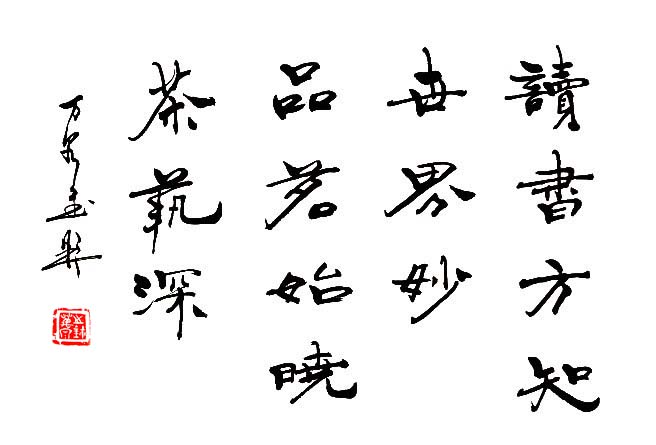 讀書方知
世界妙
品茗始曉
茶藝深